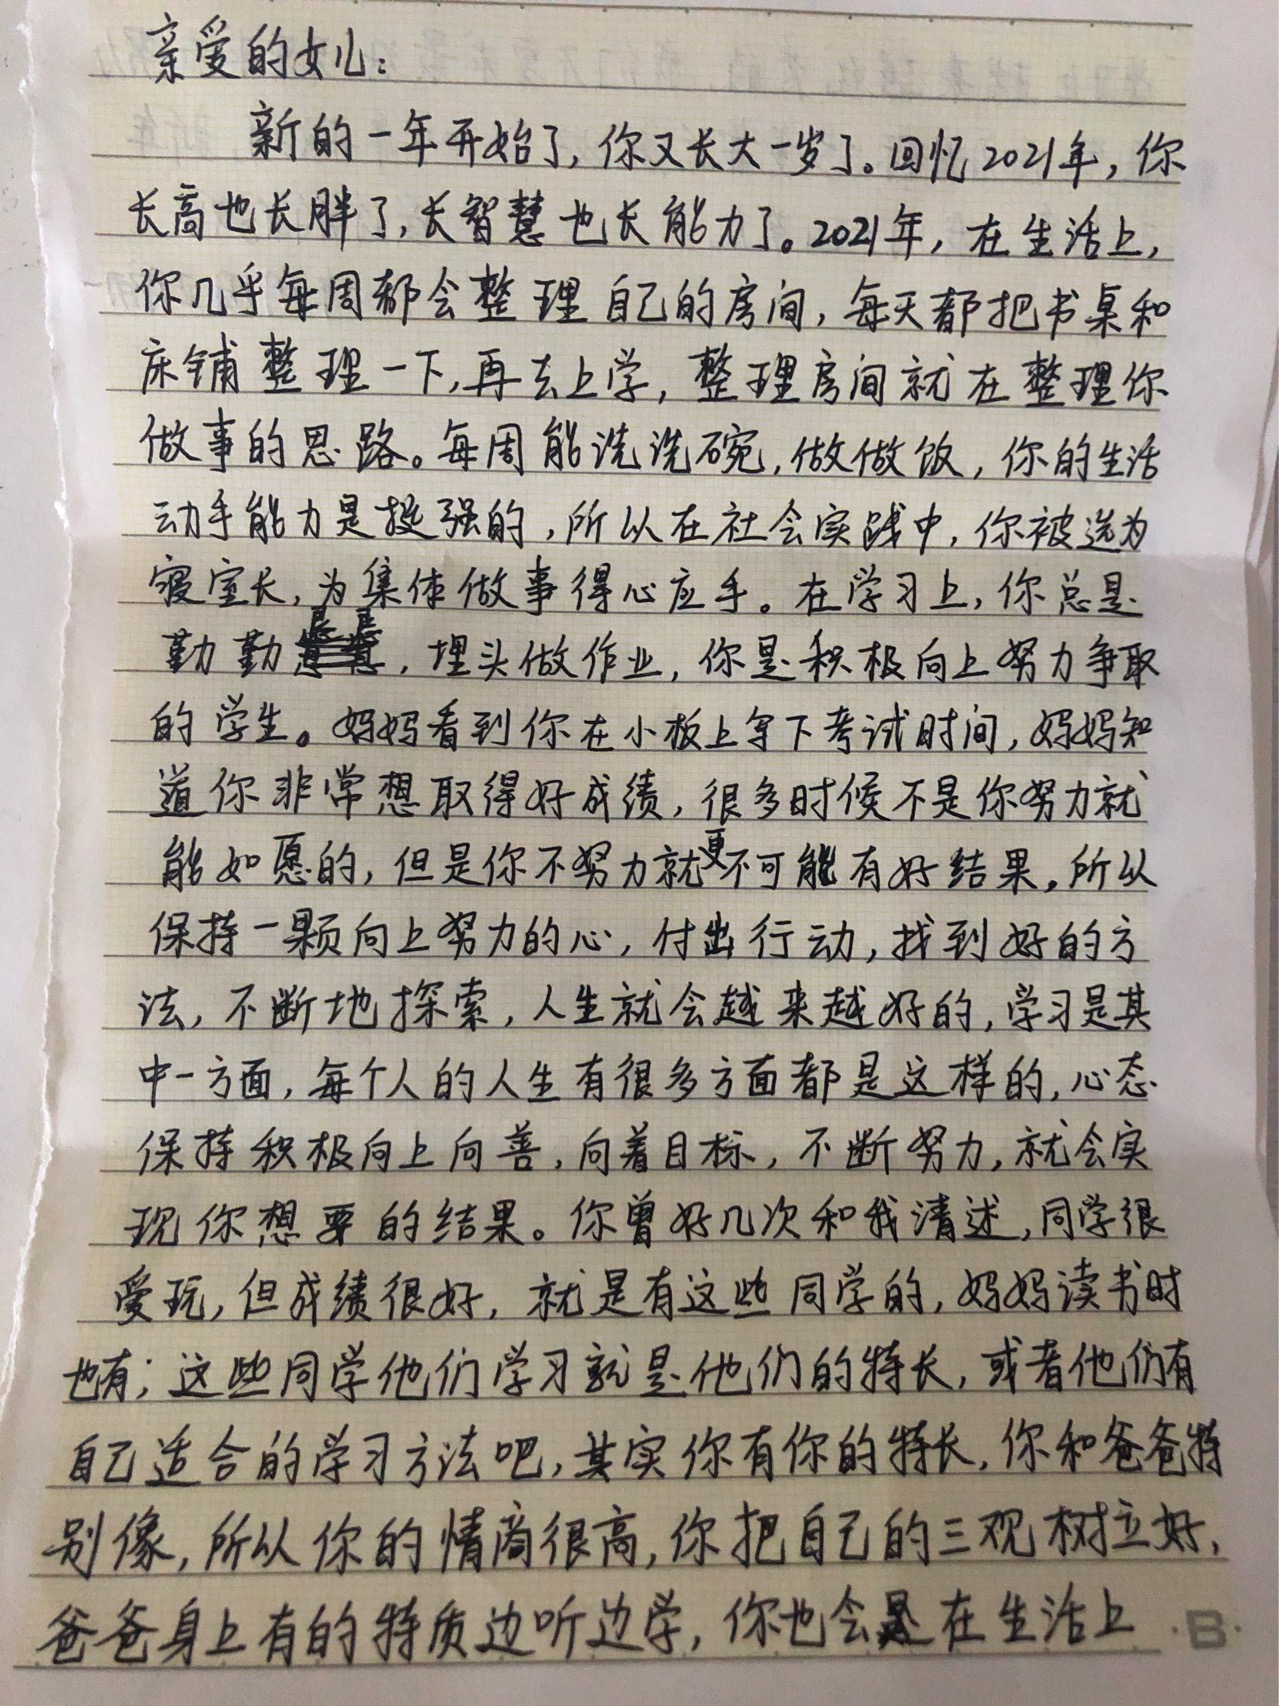 亲爱的女儿：
新的一年开始了，你又长大一岁了。回忆2021年，你
长高也长胖了，长智慧也长能力了。2021年，在生活上，
你几乎每周都会整理自己的房间，每天都把书桌和
床铺整理一下，再去上学，整理房间就在整理你
做事的思路。每周能洗洗碗，做做饭，你的生活
动手能力是挺强的，所以在社会实践中，你被选为
寝室长，为集体做事得心应手。在学习上，你总是
勤勤恳恳，埋头做作业，你是积极向上努力争取
的学生。妈妈看到你在小板上写下考试时间，妈妈知
道你非常想取得好成绩，很多时候不是你努力就
能如愿的，但是你不努力就更不可能有好结果。所以
保持一颗向上努力的心，付出行动，找到好的方
法，不断地探索，人生就会越来越好的，学习是其
中一方面，每个人的人生有很多方面都是这样的，心态
保持积极向上向善，向着目标，不断努力，就会实
现你想要的结果。你曾好几次和我清述，同学很
爱玩，但成绩很好，就是有这些同学的，妈妈读书时
也有；这些同学他们学习就是他们的特长，或者他们有
自己适合的学习方法吧，其实你有你的特长，你和爸爸特
别像，所以你的情商很高，你把自己的三观树立好，
爸爸身上有的特质边听边学，你也会是在生活上
B